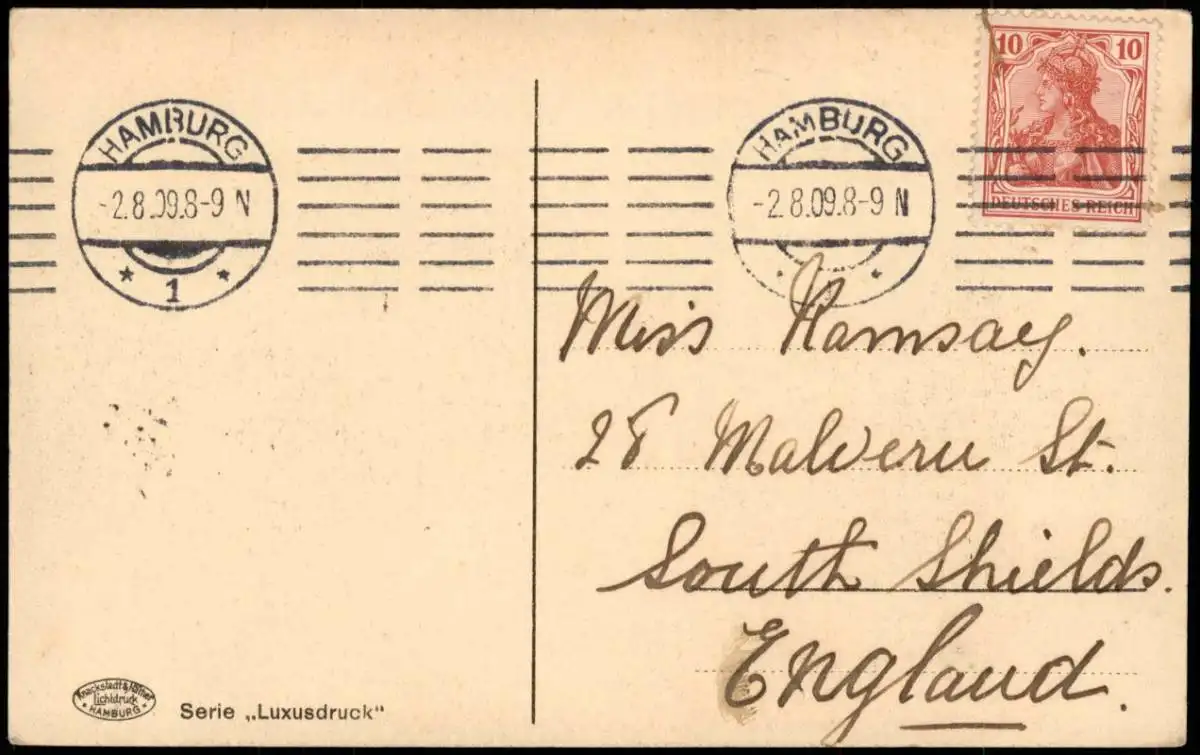 10 10
DEUTSCHES REICH
HAMBURG
-2.8.09.8-9 N
1
HAMBURG
-2.8.09.8-9 N
Miss Ramsay.
28 Malvern St.
South Shields.
England.
Knackstedt & Näther
Lichtdruck
HAMBURG
Serie „Luxusdruck"